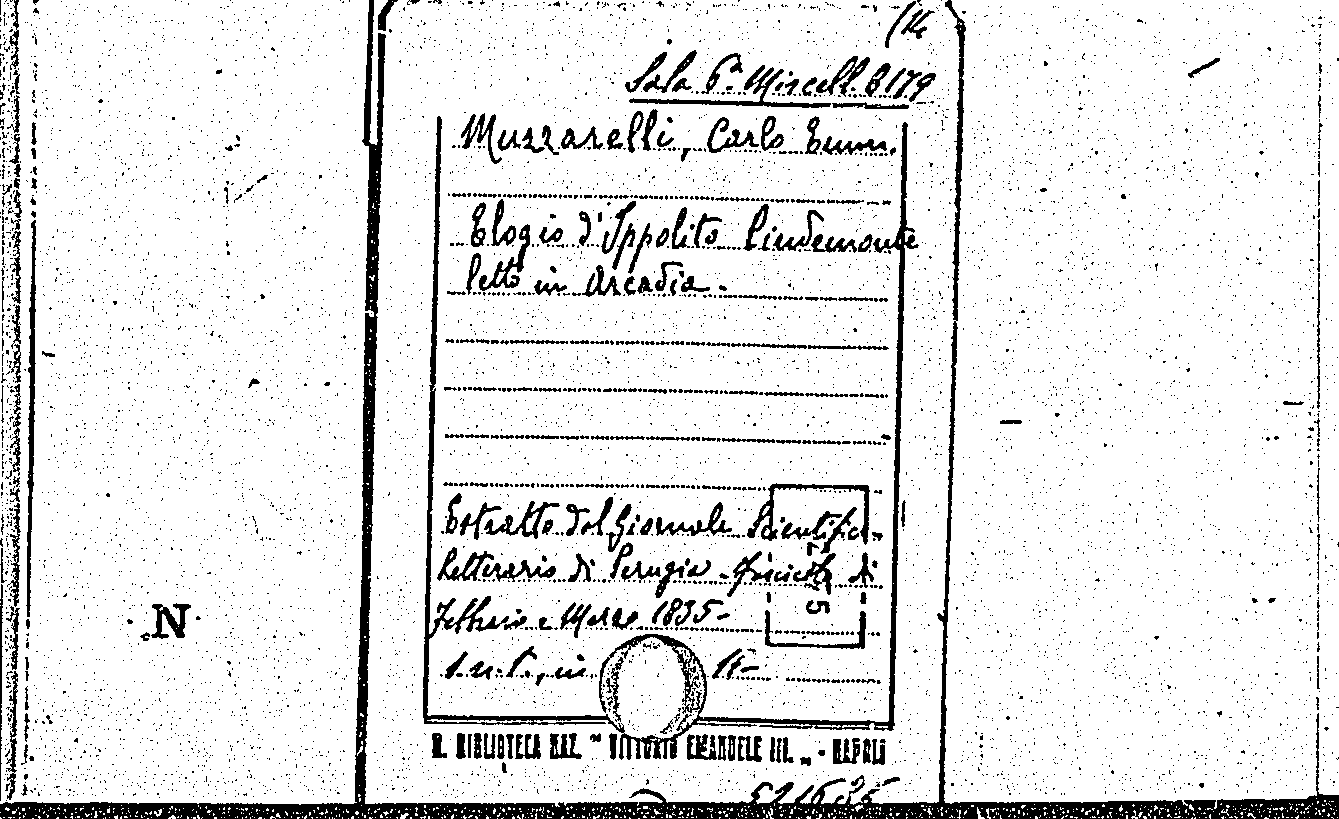 Sala 6ª. Miscell. B 179
Muzzarelli, Carlo Emm.
Elogio d'Ippolito Pindemonte
letto in Arcadia.
Estratto dal Giornale Scientifico-
Letterario di Perugia - fascicolo di
Febbraio e Marzo 1835-
s.n.t., in
N
R. BIBLIOTECA NAZ. " VITTORIO EMANUELE III. „ - NAPOLI